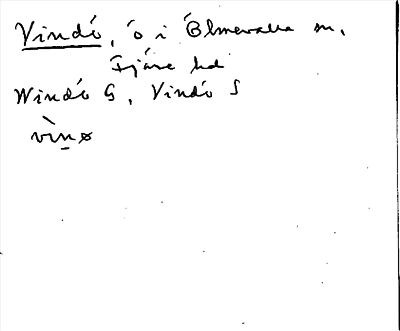 Vindö, ö i Ölmevalla sn,
Fjäre hd
Windö G, Vindö S
vìnø